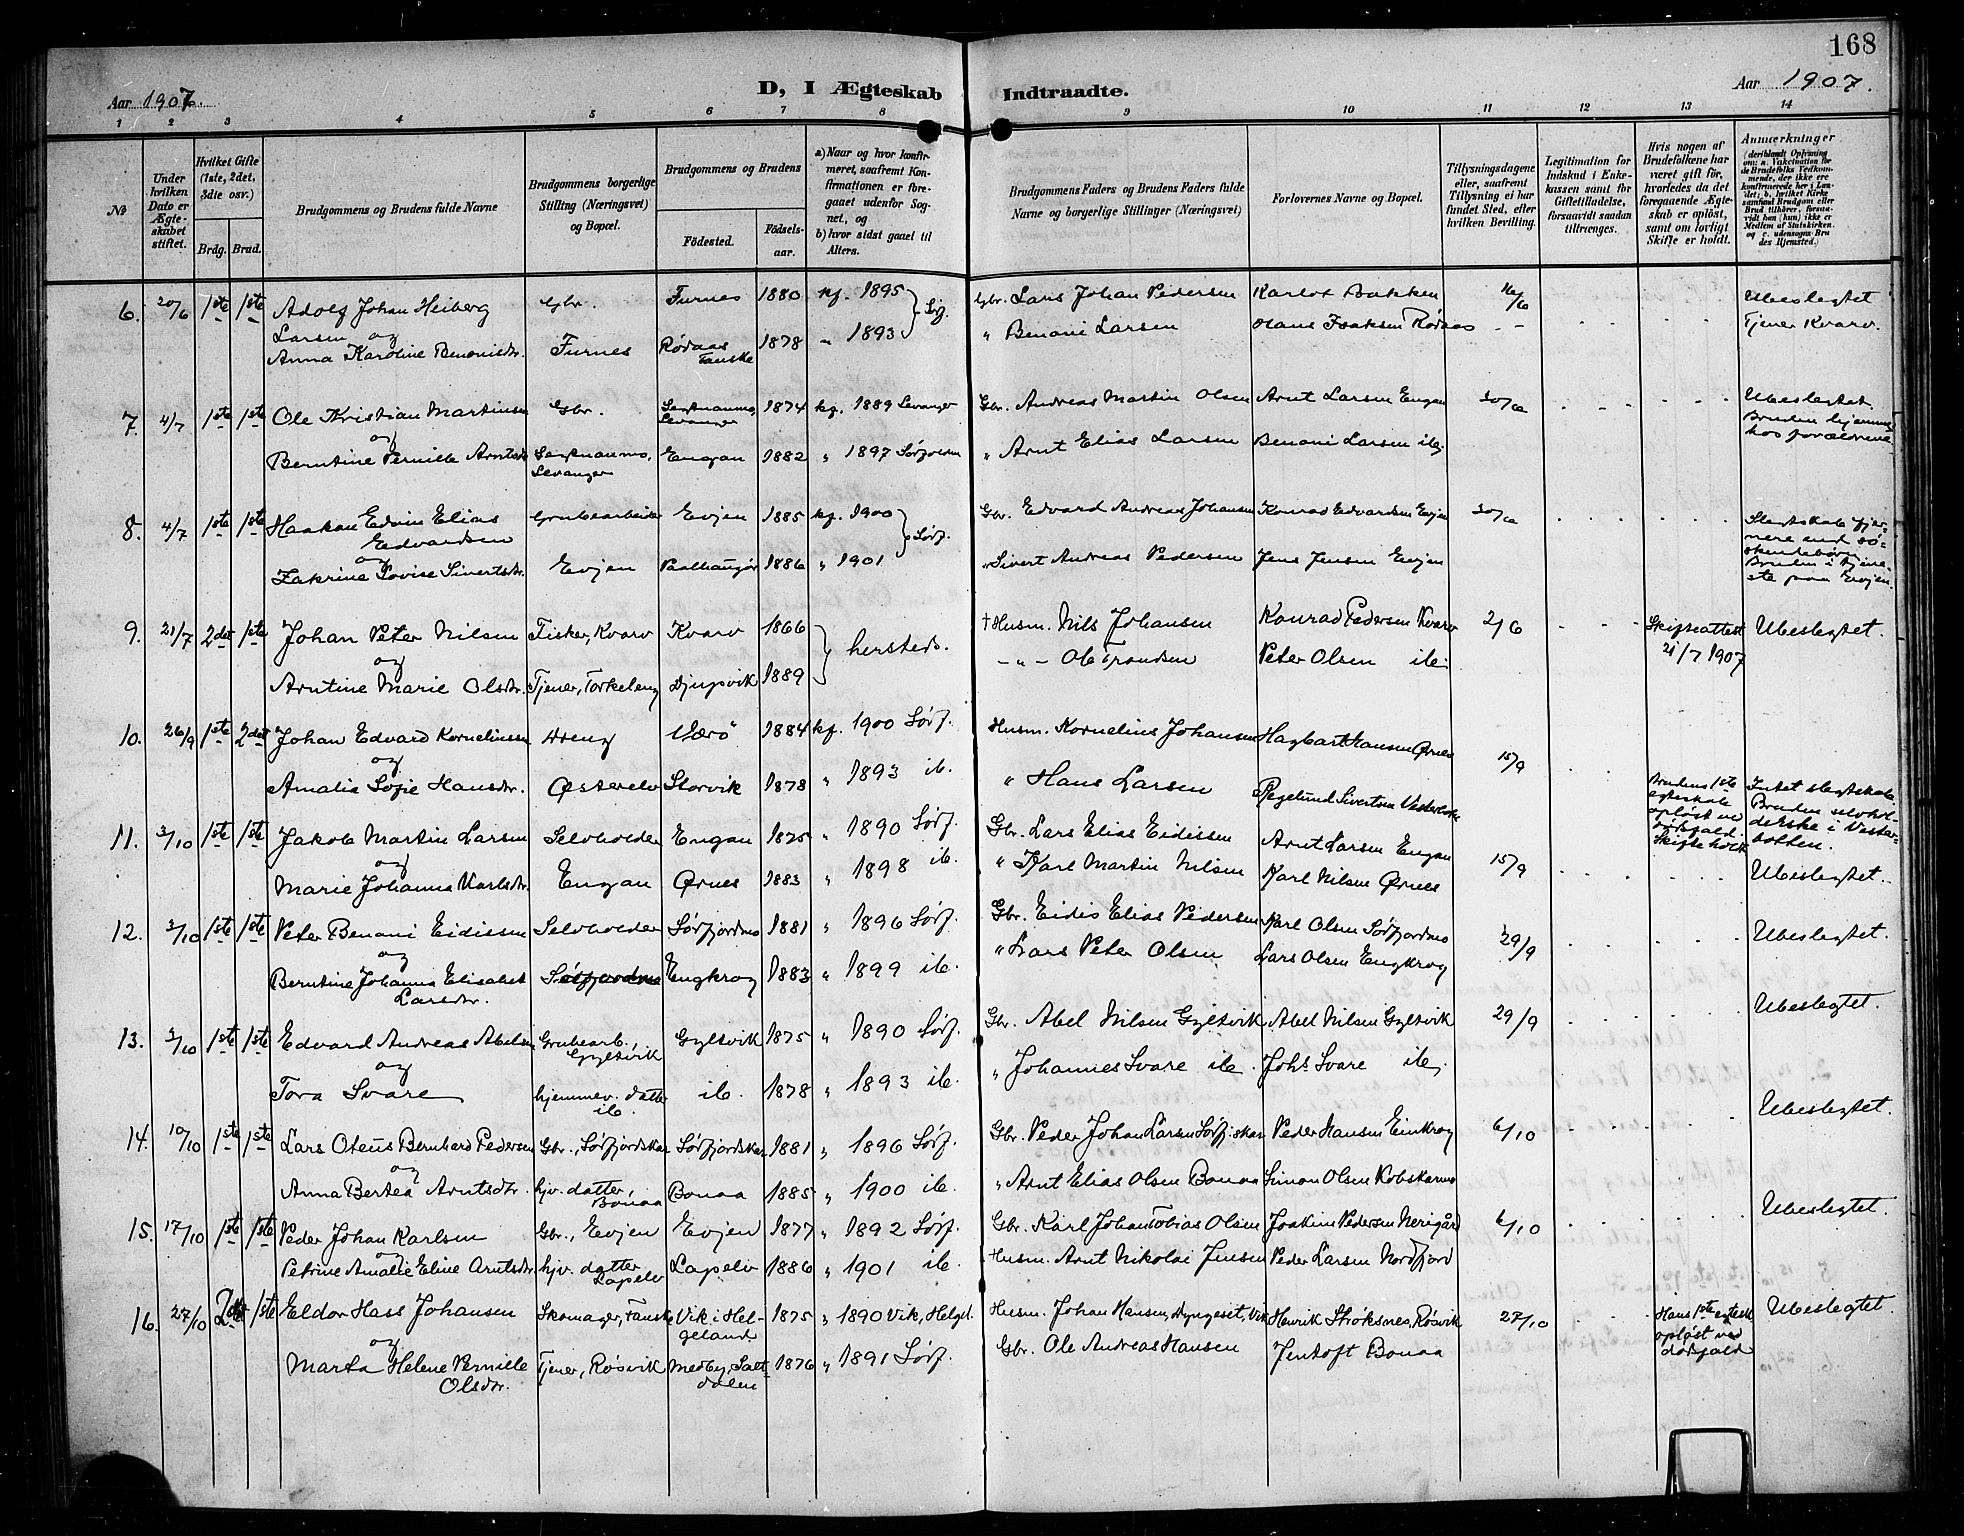 168
Aar 1907.
D, I Ægteskab
Indtraadte.
Aar 1907.
1 2 3 4 5 6 7 8 9 10 11 12 13 14
No
Under hvilken Dato er Ægteskabet stiftet.
Hvilket Gifte (1ste, 2det, 3die osv.)
Brdg. Brud.
Brudgommens og Brudens fulde Navne
Brudgommens borgerlige Stilling (Næringsvei) og Bopæl.
Brudgommens og Brudens
Fødested.
Fødselsaar.
a) Naar og hvor konfirmeret, saafremt Konfirmationen er foregaaet udenfor Sognet, og
b) hvor sidst gaaet til Alters.
Brudgommens Faders og Brudens Faders fulde Navne og borgerlige Stillinger (Næringsvei)
Forlovernes Navne og Bopæl.
Tillysningsdagene eller, saafremt Tillysning ei har fundet Sted, efter hvilken Bevilling.
Legitimation for Indskud i Enkekassen samt for Giftetilladelse, forsaavidt saadan tiltrænges.
Hvis nogen af Brudefolkene har været gift før, hvorledes da det foregaaende Ægteskab er opløst, samt om lovligt Skifte er holdt.
Anmærkninger
6. 20/6 1ste 1ste Adolf Johan Heiberg Gbr. Furnes 1880 kf. 1895 Sørf. Gbr. Lars Johan Pedersen Karlot Bakken 16/6 Ubeslegtet
Larsen og
Anna Karoline Benonisdr. Furnes Rødaas Fauske 1878 " 1893 " Benoni Larsen Hans Isaksen Rødaas Tjener Kvarv.
7. 4/7 1ste 1ste Ole Kristian Martinsen Gbr. Levanger 1874 kf. 1889 Levanger Gbr. Andreas Martin Olsen Arnt Larsen Engan 30/6 Ubeslegtet.
og
Berntine Pernille Arntsdr. Levanger Engan 1882 " 1897 Sørfolden " Arnt Elias Larsen Benoni Larsen ib. Bruden hjemme hos forældrene
8. 4/7 1ste 1ste Haakon Edvin Elias Grubearbeider Evjen 1885 kf. 1900 Sørf. Gbr. Edvard Andreas Johansen Konrad Edvardsen Evjen 30/6 Slegtskab fjernere end søskendebørn.
Edvardsen
og
Zakrine Lovise Sivertsdr. Evjen 1886 " 1901 " Sivert Andreas Pedersen Jens Jensen Evjen Bruden i tjeneste paa Evjen.
9. 21/7 2det 1ste Johan Peter Nilsen Fisker, Kvarv Kvarv 1866 hersteds. † Husm. Nils Johansen Konrad Pedersen Kvarv 2/6 Skifteattest 21/7 1907 Ubeslegtet.
og
Arntine Marie Olsdr. Tjener, Torkeleng Djupvik 1889 - " - Ole Trondsen Peter Olsen ib.
10. 26/9 1ste 2det Johan Edvard Korneliussen Dreng Værø 1884 kf. 1900 Sørf. Husm. Kornelius Johansen Hagbart Hansen Ørnes 15/9
og
Amalia Sofie Hansdr. Østerelv Storvik 1878 " 1893 ib. " Hans Larsen Sivertsen Brudens 1ste egteskab opløst ved dødsfald. Skifte holdt Intet slegtskab. Bruden selvholderske i Vesterbotten.
11. 3/10 1ste 1ste Jakob Martin Larsen Selvholder Engan 1875 " 1890 Sørf. Gbr. Lars Elias Eidissen Arnt Larsen Engan 15/9 Ubeslegtet.
og
Marie Johanna Karlsdr. Engan Ørnes 1883 " 1898 ib. " Karl Martin Nilsen Karl Nilsen Ørnes
12. 3/10 1ste 1ste Peter Benoni Eidissen Selvholder Sørfjordmo 1881 " 1896 Sørf. Gbr. Eidis Elias Pedersen Karl Olsen Sørfjordmo 29/9 Ubeslegtet.
og
Berntine Johanna Elisabet Larsdr. Sørfjordmo Engkrog 1883 " 1899 ib. " Lars Peter Olsen Lars Olsen Engkrog
13. 3/10 1ste 1ste Edvard Andreas Abelsen Grubearb., Gyltvik Gyltvik 1875 " 1890 Sørf. Gbr. Abel Nilsen Gyltvik Abel Nilsen Gyltvik 29/9 Ubeslegtet.
og
Tora Svare hjemmev. datter ib. ib. 1878 " 1893 ib. " Johannes Svare ib. Johs Svare ib.
14. 10/10 1ste 1ste Lars Oteus Bernhard Pedersen Gbr., Sørfjordskar Sørfjordskar 1881 " 1896 Sørf. Gbr. Peder Johan Larsen Sørfj.skar Peder Hansen Einkrog 6/10 Ubeslegtet.
og
Anna Bertea Arntsdr. hjv. datter, Bonaa Bonaa 1885 " 1900 ib. " Arnt Elias Olsen Bonaa Simon Olsen Kobskarmo
15. 17/10 1ste 1ste Peder Johan Karlsen Gbr., Evjen Evjen 1877 " 1892 Sørf. Gbr. Karl Johan Tobias Olsen Joakim Pedersen Nerigård 6/10 Ubeslegtet.
og
Petrine Amalie Eline Arntsdr. hjv. datter Lapelv Lapelv 1886 " 1901 ib. Husm. Arnt Nikolai Jensen Peder Larsen Nordfjord
16. 27/10 2det 1ste Eldor Hass Johansen Skomager, Fauske Vik i Helgeland 1875 " 1890 Vik, Helgel. Husm. Johan Hansen, Vik Henrik Strøksnes, Røsvik 27/10 Hans 1ste egtesk. opløst ved dødsfald Ubeslegtet.
og
Marta Helene Pernille Olsdr. Tjener, Røsvik Medby, Saltdalen 1876 " 1891 Sørf. Gbr. Ole Andreas Hansen Jentoft Bonaa